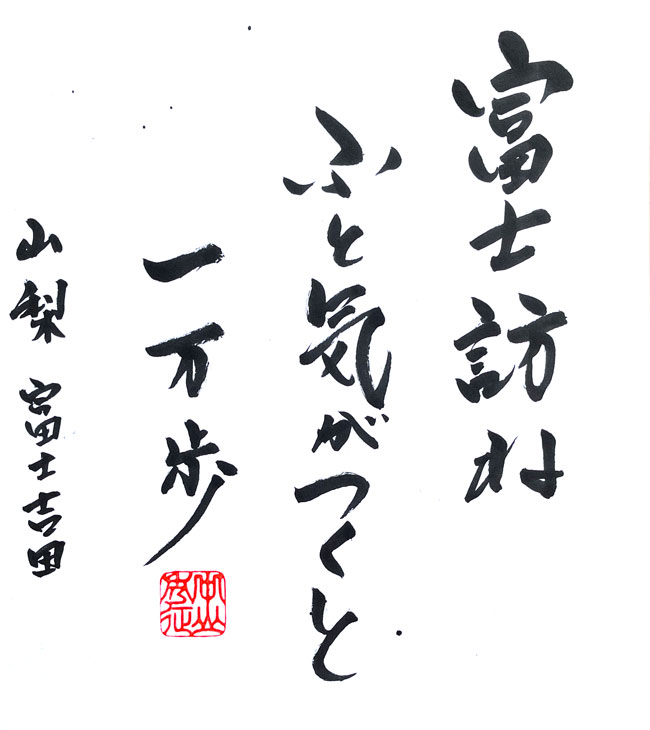 富士訪ね
ふと気がつくと
一万歩
山梨 富士吉田